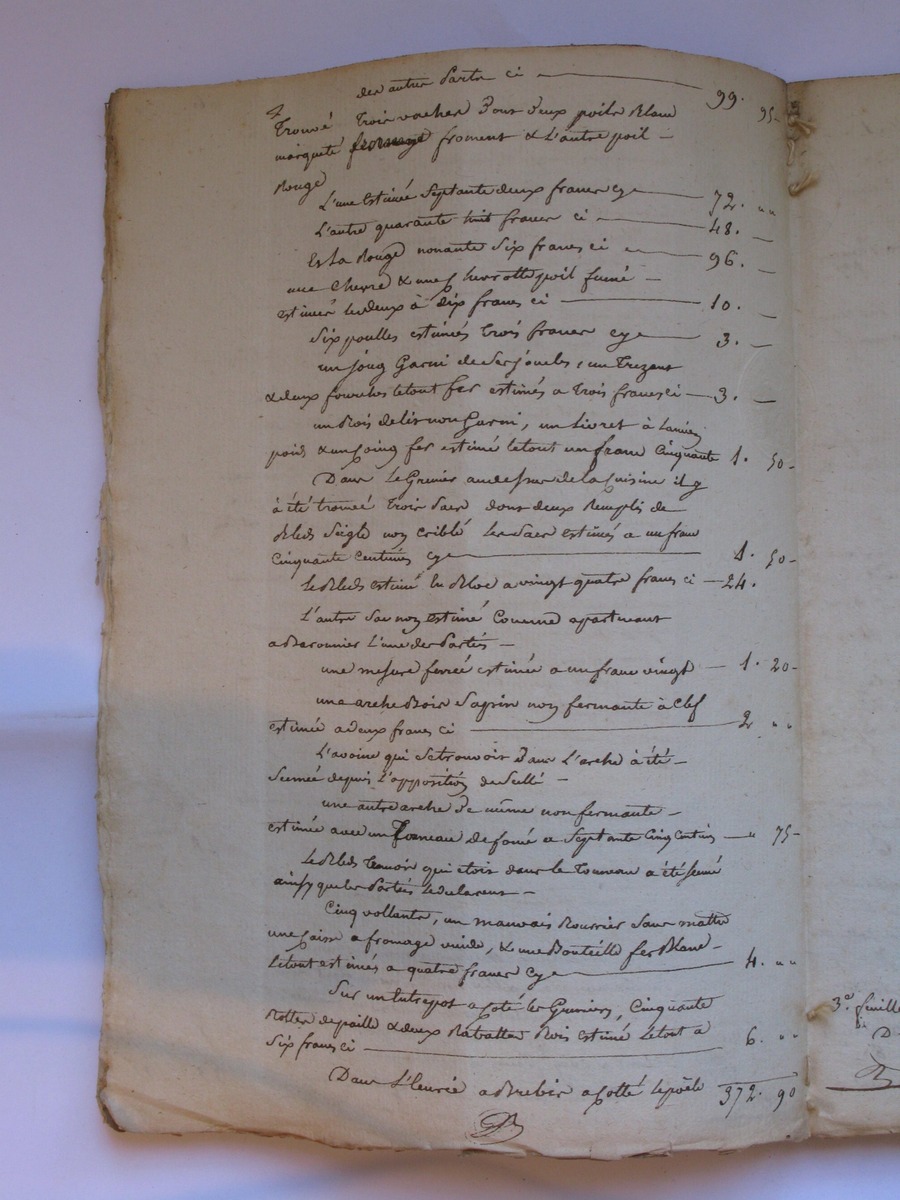 des autres Parts ci — 99. 95-
Trouvé Trois vaches Dont deux poils Blanc
marqueté froment & L'autre poil —
Rouge
L'une Estimée Septante deux francs cy — 72. " "
L'autre quarante huit francs ci — 48. —
Et La Rouge nonante Six francs ci — 96. —
une Chevre & une Chevrotte poil fumé —
estimée les deux à dix francs ci — 10. —
Six poulles estimées Trois francs cy — 3. —
un joug Garni de Ses joucles, un Trezant
& deux fourches le tout fer estimés a Trois francs ci — 3. —
un Bois de lit non Garni, un Livret à
poids & un Coing fer estimé le tout un franc Cinquante 1. 50-
Dans Le Grenier au dessus de la Cuisine il y
à été trouvé Trois Sacs dont deux Remplis de
Bleds Seigle non criblé les Sacs estimés a un franc
Cinquante Centimes cy — 1. 50-
Le Bleds estimé En Bloc a vingt quatre francs ci — 24.
L'autre Sac non estimé Comme apartenant
a L'une des Partés —
une mesure ferrée estimée a un franc vingt — 1. 20-
une arche Bois Sapin non fermante à Clef
estimée a deux francs ci — 2 " "
L'avoine qui Se trouvoit Dans L'arche à été —
Semée depuis L'apposition de Scellé —
une autre arche De même non fermante —
estimée avec un Tonneau de a Septante Cinq Centimes — " 75-
Le Bleds qui etoit dans le Tonneau a été Semé
ainsy que les Partés le declarent —
Cinq vollants, un mauvais Bourrier Sans
une Caisse a fromage vuide, & une Bouteille fer Blanc —
Le tout estimés a quatre francs cy — 4. " "
Sur un Entrepot a Coté les Greniers, Cinquante
Bottes de paille & deux Bois estimé Le tout a
Six francs ci — 6. " "
Dans L'Ecurie a Brebis a Cotté le poële 372. 90
3e feuille
D